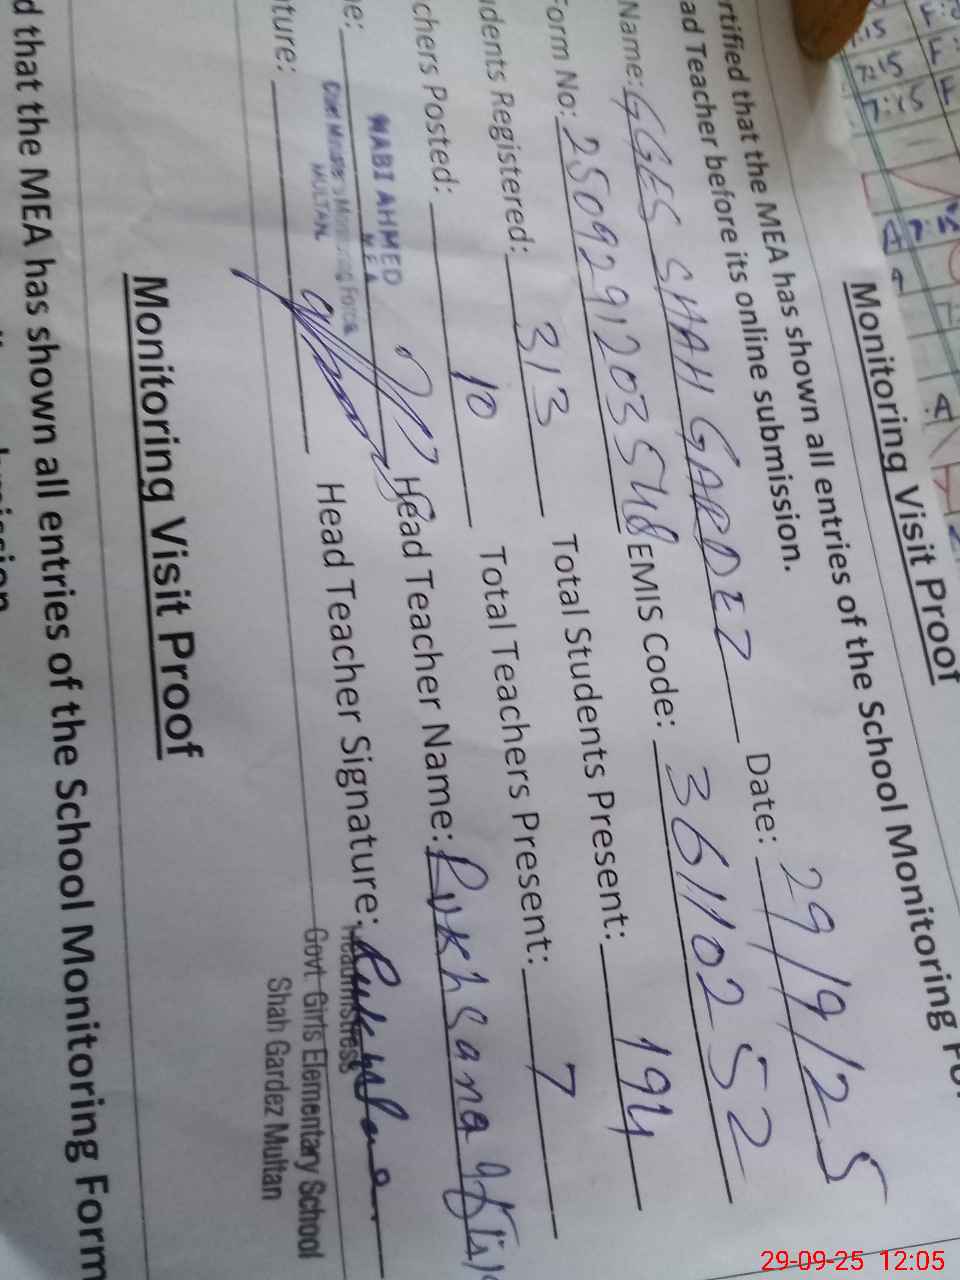 Monitoring Visit Proof
rtified that the MEA has shown all entries of the School Monitoring Fo
ad Teacher before its online submission.
Name: GGES SHAH GARDEZ Date: 29/9/25
Form No: 2509291203548 EMIS Code: 36110252
udents Registered: 313 Total Students Present: 194
chers Posted: 10 Total Teachers Present: 7
e: Head Teacher Name: Rukhsana
NABI AHMED
MEA
Chief Minister's Monitoring Force
MULTAN
ture: Head Teacher Signature:
Headmistress
Govt Girls Elementary School
Shah Gardez Multan
Monitoring Visit Proof
d that the MEA has shown all entries of the School Monitoring Form
29-09-25 12:05